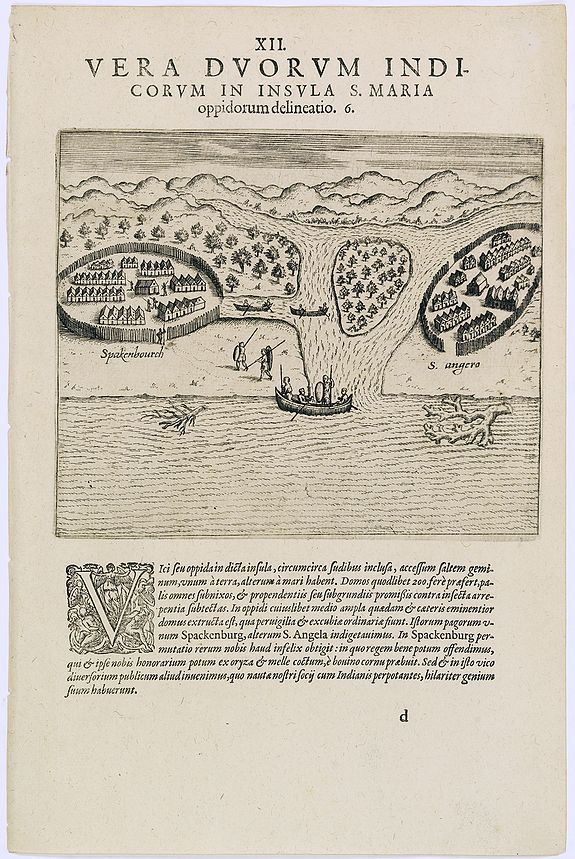 XII.
VERA DVORVM INDI-
CORVM IN INSVLA S. MARIA
oppidorum delineatio. 6.
Spakenbourch
S. angero
VIci seu oppida in dicta insula, circumcirca sudibus inclusa, accessum saltem gemi-
num, vnum à terra, alterum à mari habent. Domos quodlibet 200. ferè præfert, pa-
lis omnes subnixos, & propendentiis seu subgrundiis promissis contra insecta arre-
pentia subtectas. In oppidi cuiuslibet medio ampla quædam & cæteris eminentior
domus extructa est, qua peruigilia & excubiæ ordinariæ fiunt. Istorum pagorum v-
num Spackenburg, alterum S. Angela indigetauimus. In Spackenburg per-
mutatio rerum nobis haud infelix obtigit: in quo regem bene potum offendimus,
qui & ipse nobis honorarium potum ex oryza & melle coctum, è bouino cornu præbuit. Sed & in isto vico
diuersorium publicum aliud inuenimus, quo nautæ nostri socij cum Indianis perpotantes, hilariter genium
suum habuerunt.
d